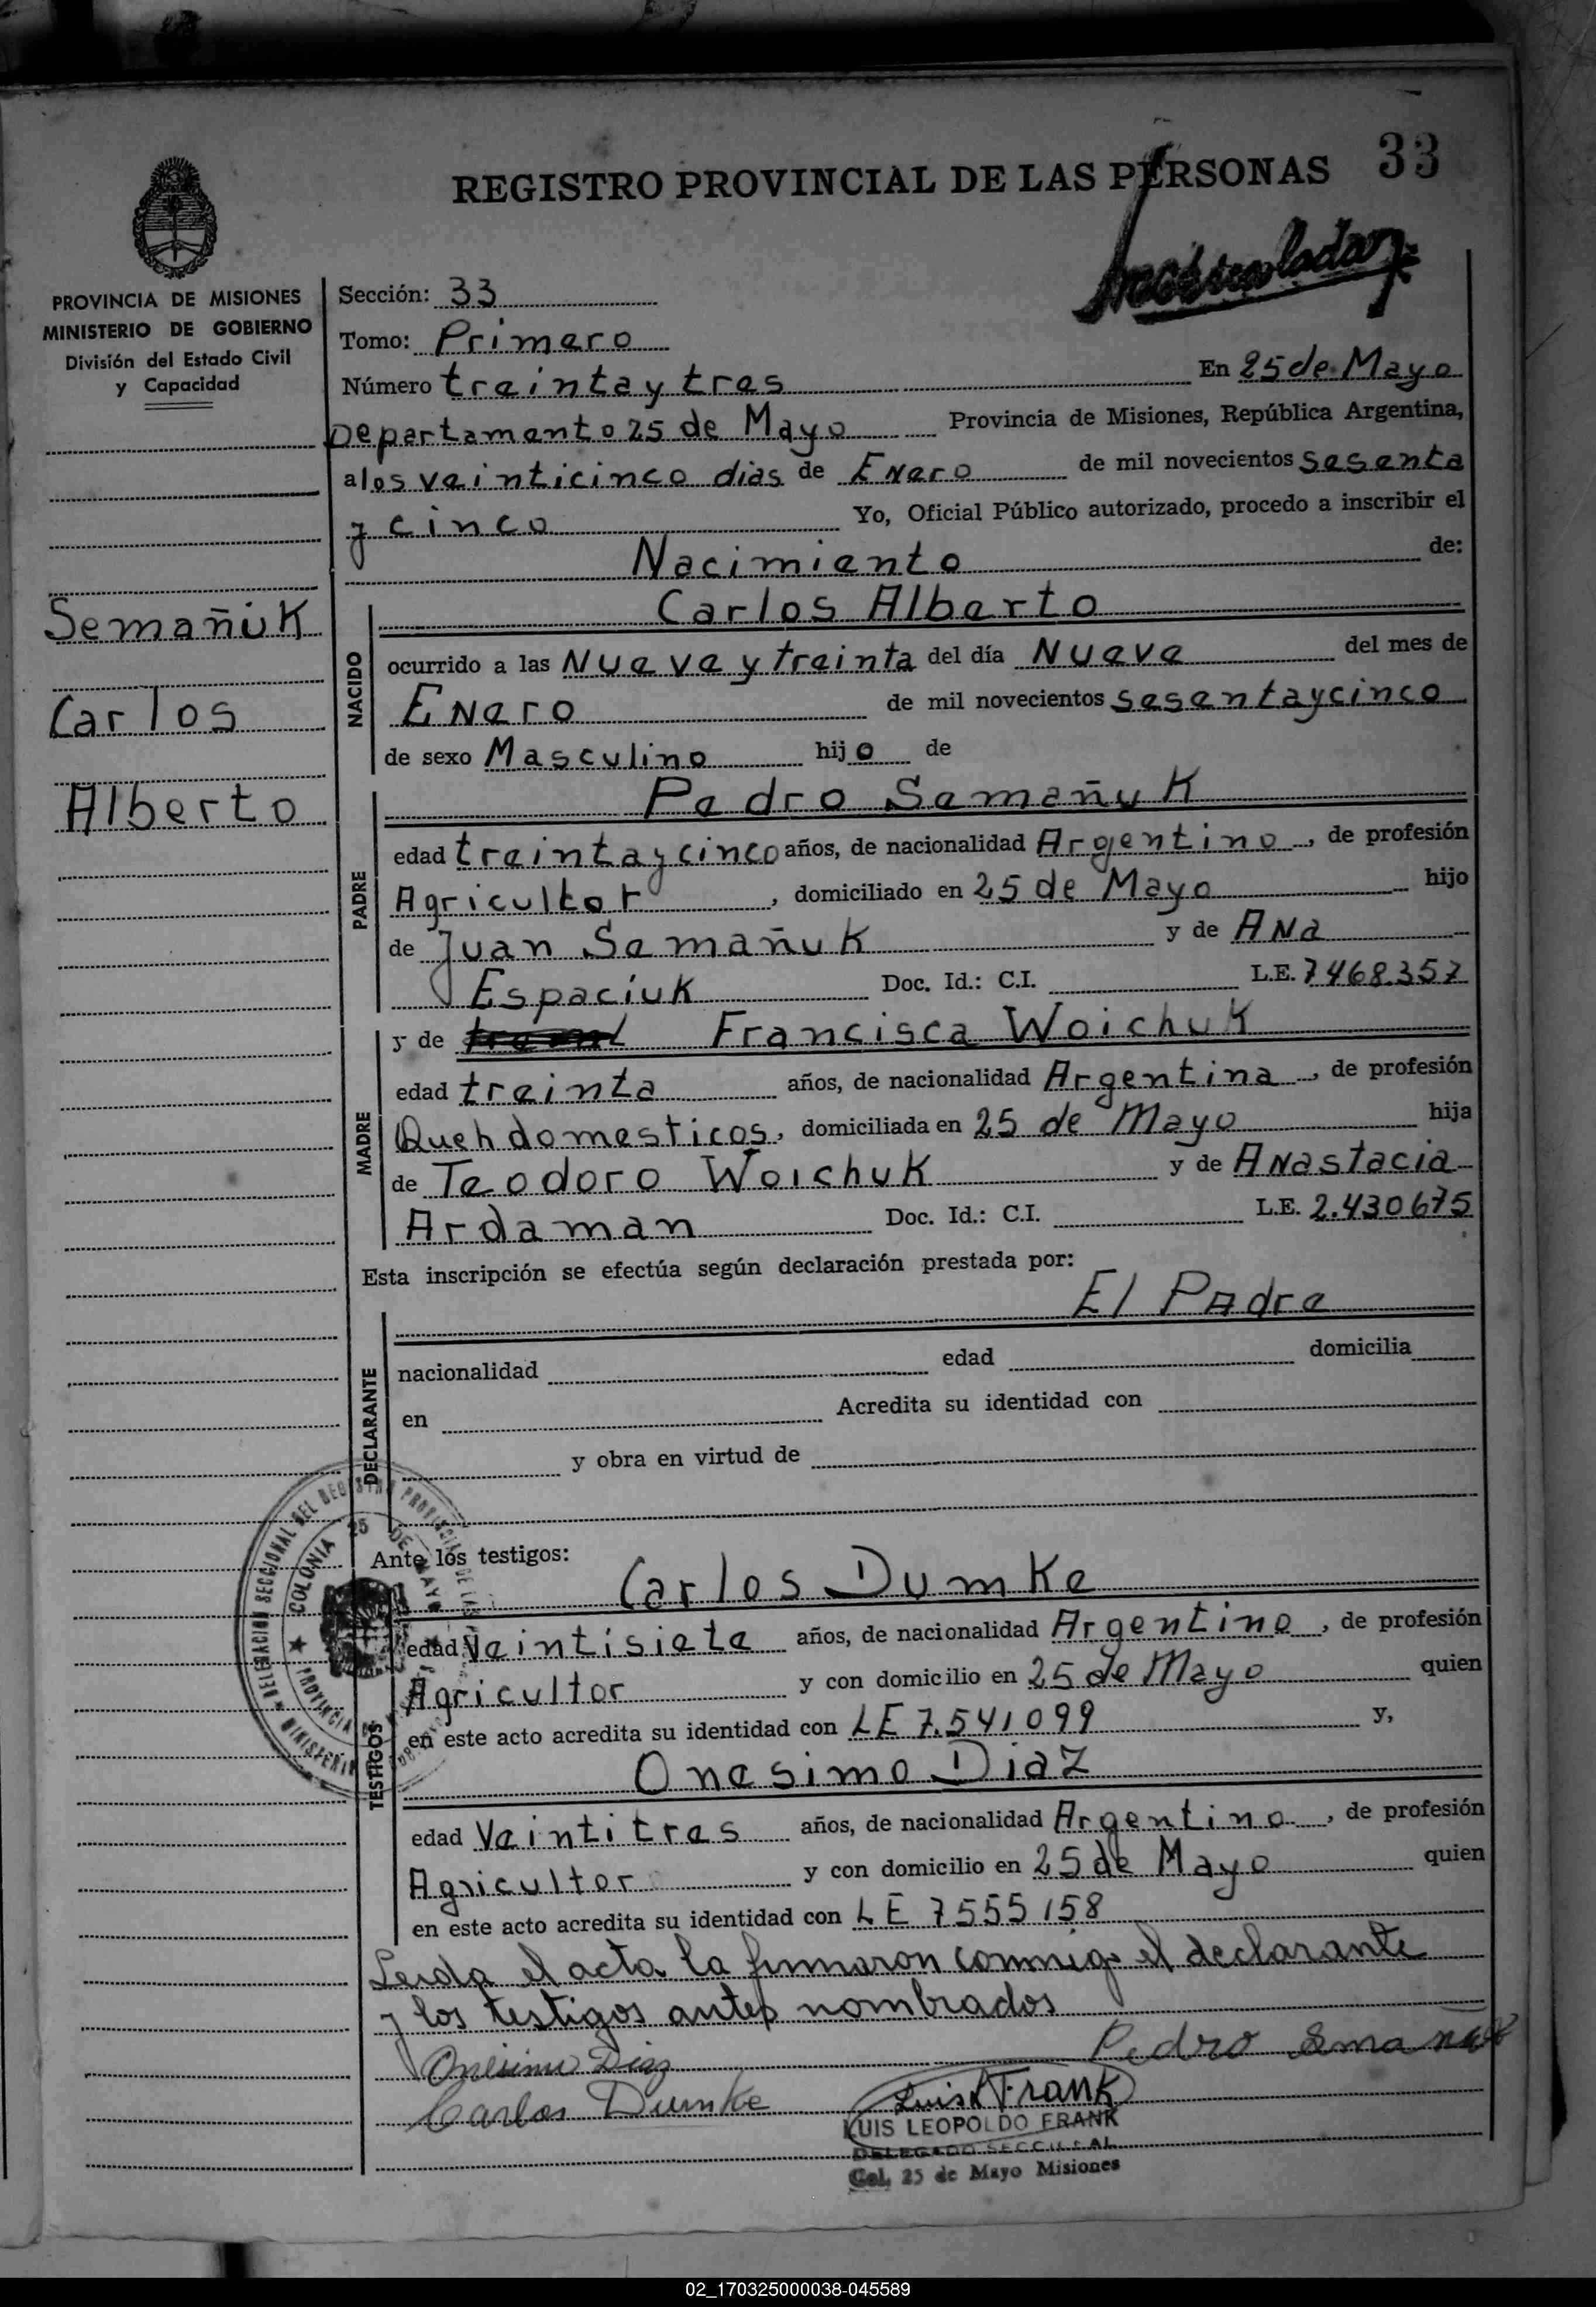 REGISTRO PROVINCIAL DE LAS PERSONAS 33
Matriculado
PROVINCIA DE MISIONES
MINISTERIO DE GOBIERNO
División del Estado Civil
y Capacidad
Semañiuk
Carlos
Alberto
Sección: 33
Tomo: Primero
Número treinta y tres En 25 de Mayo
Departamento 25 de Mayo Provincia de Misiones, República Argentina,
a los veinticinco dias de Enero de mil novecientos sesenta
y cinco Yo, Oficial Público autorizado, procedo a inscribir el
Nacimiento de:
NACIDO
Carlos Alberto
ocurrido a las Nueve y treinta del día Nueve del mes de
Enero de mil novecientos sesenta y cinco
de sexo Masculino hijo de
PADRE
Pedro Semañuk
edad treinta y cinco años, de nacionalidad Argentino, de profesión
Agricultor, domiciliado en 25 de Mayo hijo
de Juan Semañuk y de Ana
Espaciuk Doc. Id.: C.I. L.E. 7468.357
MADRE
y de Francisca Woichuk
edad treinta años, de nacionalidad Argentina, de profesión
Queh domesticos, domiciliada en 25 de Mayo hija
de Teodoro Woichuk y de Anastacia
Ardaman Doc. Id.: C.I. L.E. 2.430675
Esta inscripción se efectúa según declaración prestada por:
El Padre
DECLARANTE
nacionalidad edad domicilia
en Acredita su identidad con
y obra en virtud de
DELEGACION SECCIONAL DEL REGISTRO PROVINCIAL DE LAS
COLONIA 25 DE MAYO
PROVINCIA
MINISTERIO
Ante los testigos:
TESTIGOS
Carlos Dumke
edad Veintisiete años, de nacionalidad Argentino, de profesión
Agricultor y con domicilio en 25 de Mayo quien
en este acto acredita su identidad con LE 7.541099 y,
Onesimo Diaz
edad Veintitres años, de nacionalidad Argentino, de profesión
Agricultor y con domicilio en 25 de Mayo quien
en este acto acredita su identidad con LE 7555158
Leida el acta la firmaron conmigo el declarante
y los testigos antes nombrados
Pedro
Onésimo Diaz
Carlos Dumke
Luis L Frank
LUIS LEOPOLDO FRANK
DELEGADO SECCIONAL
Col. 25 de Mayo Misiones
02_170325000038-045589